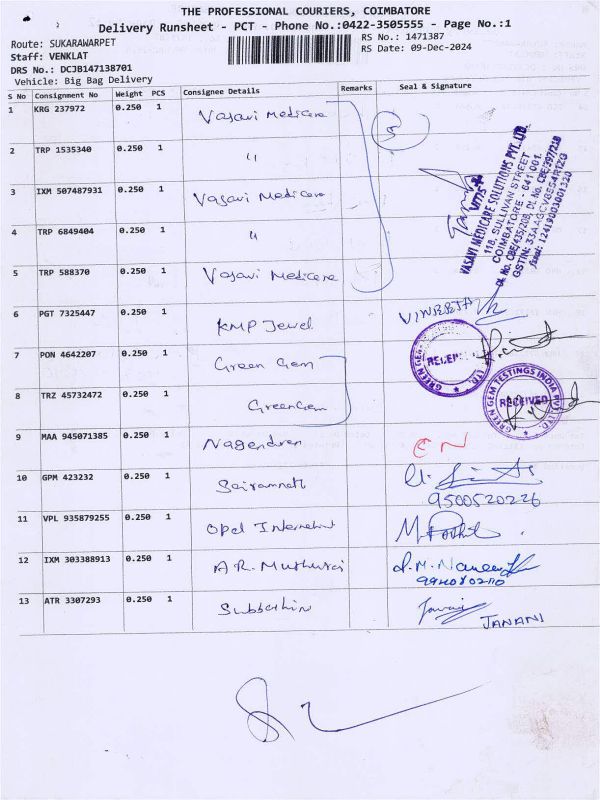 THE PROFESSIONAL COURIERS, COIMBATORE
Delivery Runsheet - PCT - Phone No.:0422-3505555 - Page No.:1
Route: SUKARAWARPET
RS No.: 1471387
Staff: VENKLAT
RS Date: 09-Dec-2024
DRS No.: DCJB147138701
Vehicle: Big Bag Delivery
S No Consignment No Weight PCS Consignee Details Remarks Seal & Signature
1 KRG 237972 0.250 1 Vasavi Medicare 5
2 TRP 1535340 0.250 1 "
3 IXM 507487931 0.250 1 Vasavi Medicare
4 TRP 6849404 0.250 1 "
5 TRP 588370 0.250 1 Vasavi Medicare
VASAVI MEDICARE SOLUTIONS PVT. LTD.
118, SULLIVAN STREET
COIMBATORE - 641 001.
6 PGT 7325447 0.250 1 KMP Jewel
7 PON 4642207 0.250 1 Green Gem
RECEIVED
8 TRZ 45732472 0.250 1 Green Gem
GREEN GEM TESTINGS INDIA PVT. LTD.
RECEIVED
9 MAA 945071385 0.250 1 Nagendren EN
10 GPM 423232 0.250 1 Sairamnath
9500520226
11 VPL 935879255 0.250 1 Opel International
12 IXM 303388913 0.250 1 A.R. Muthuraj
13 ATR 3307293 0.250 1
JANANI